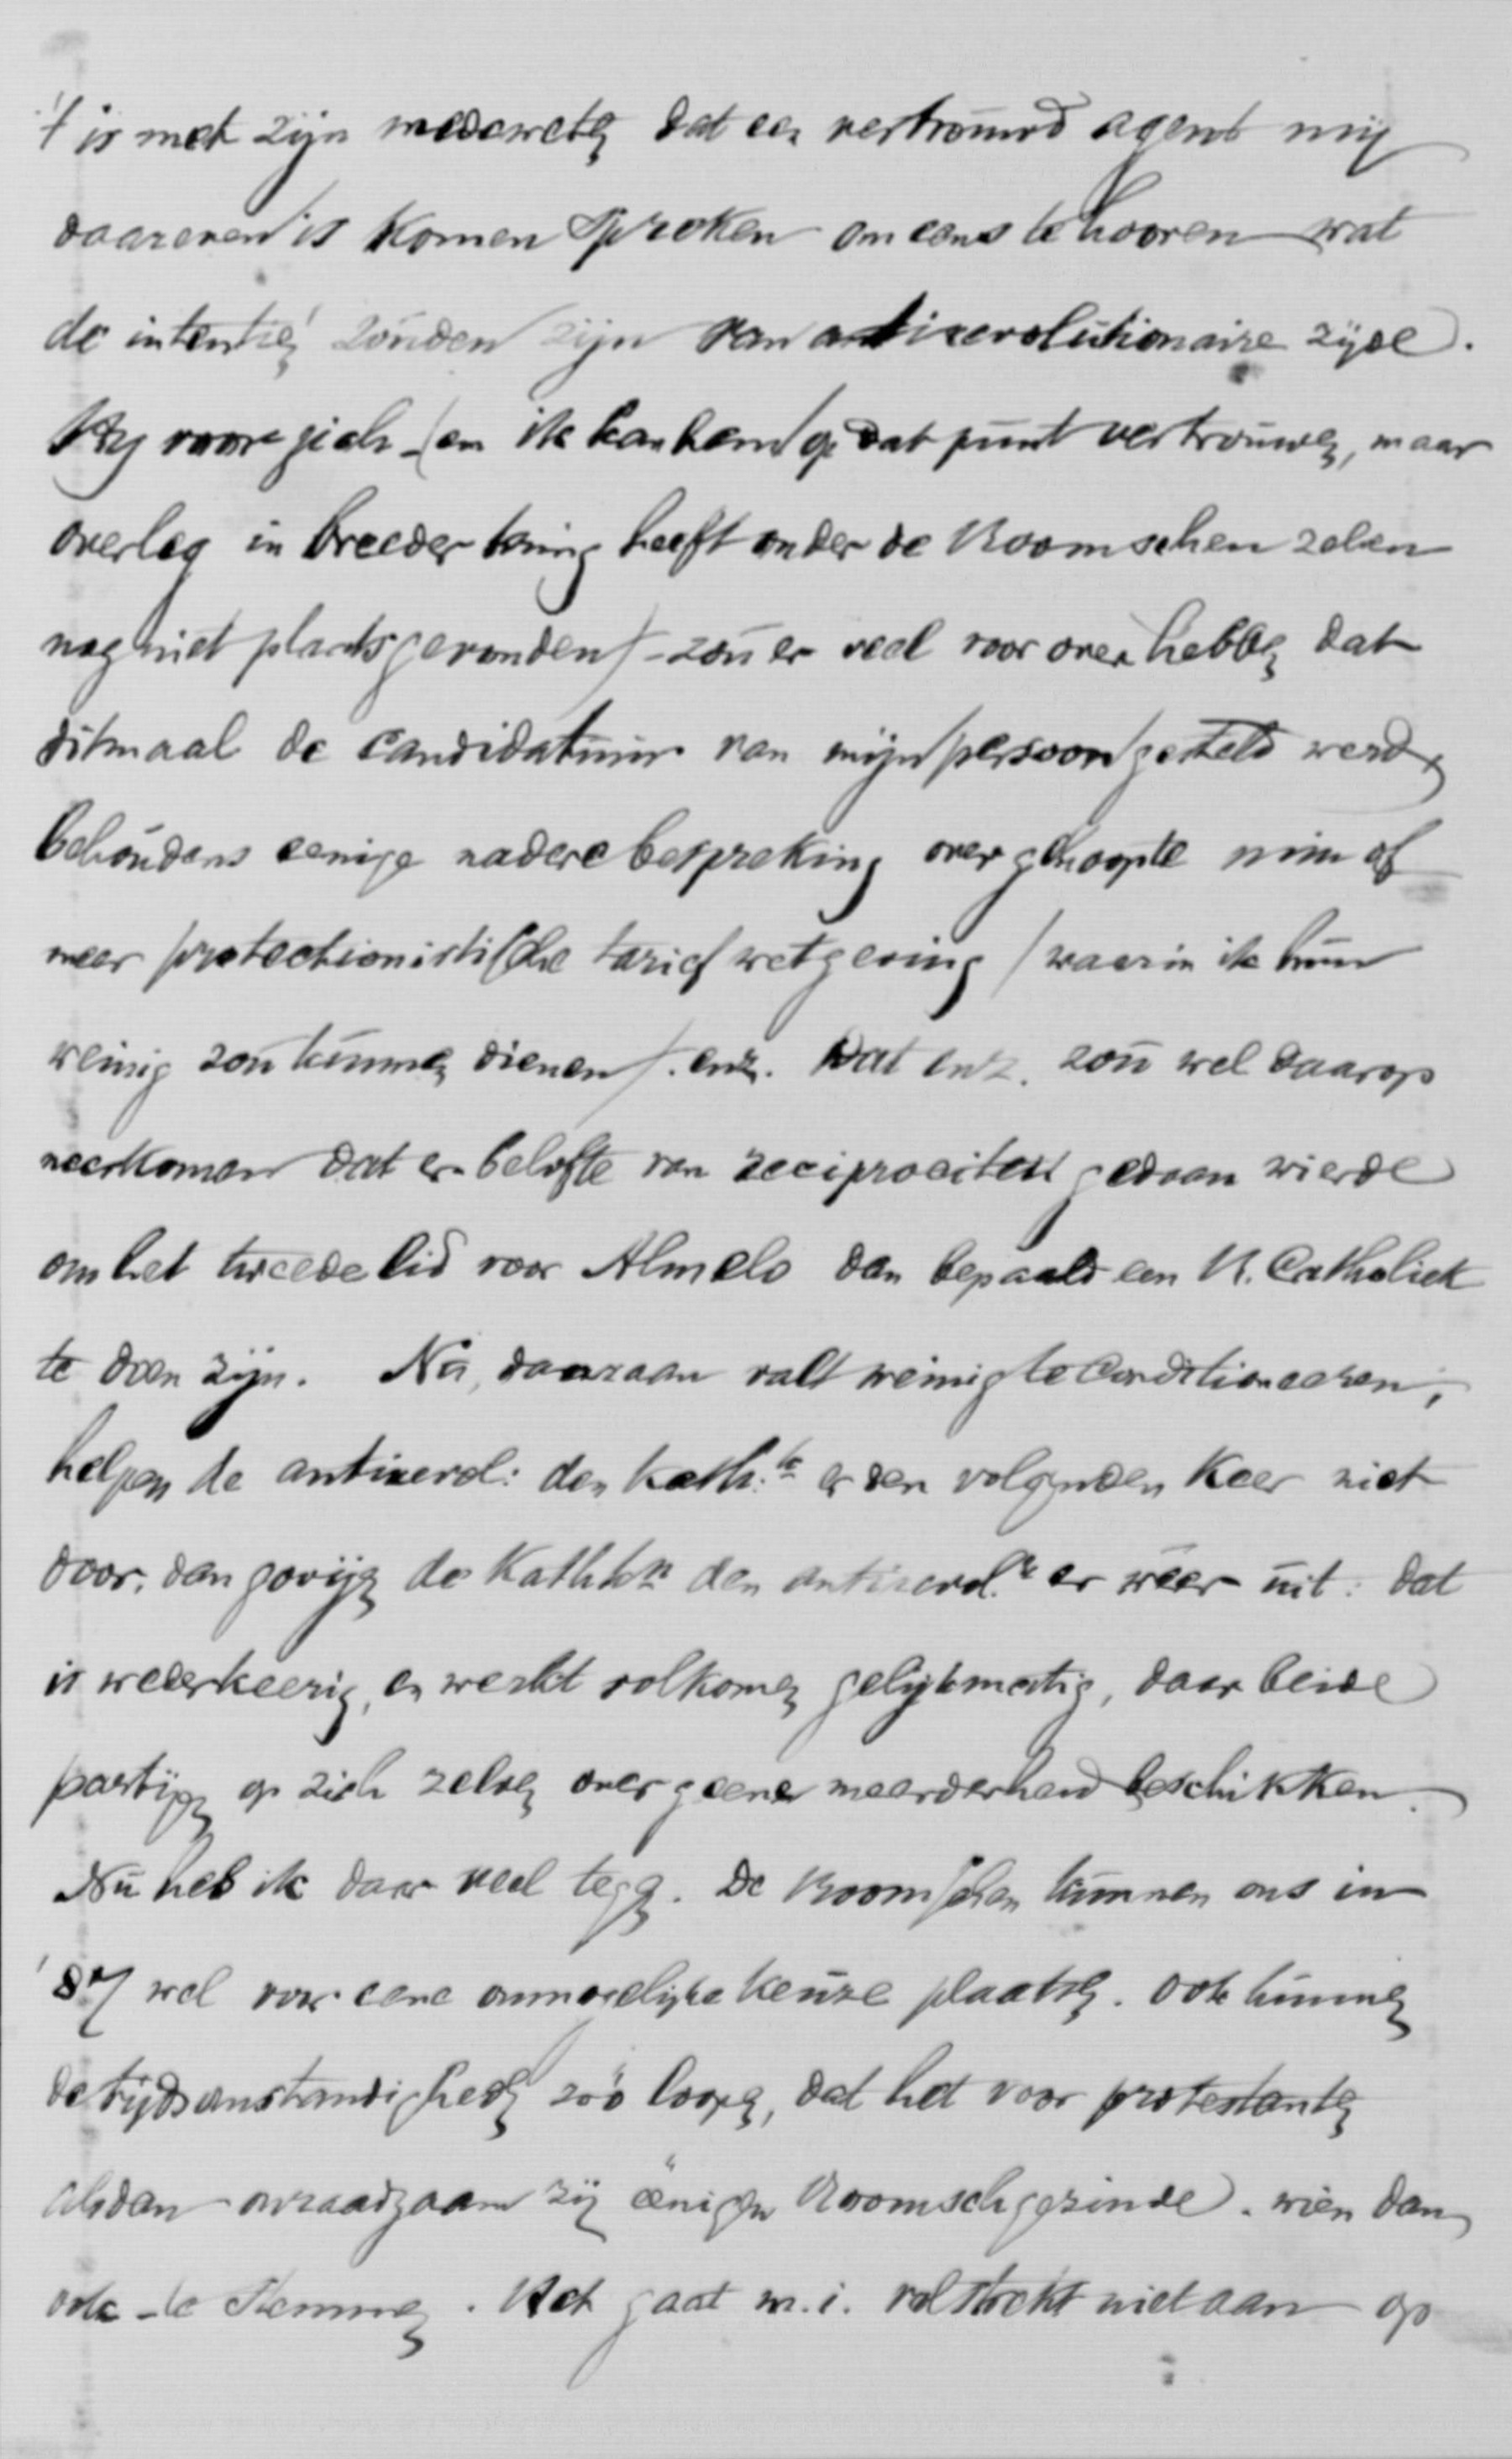 't is met zijn medeweten dat een vertrouwd agent mij
daareven is komen spreken om eens te hooren wat
de intentiën zouden zijn van antirevolutionaire zijde.
Hij voor zich – (en ik kan hem op dat punt vertrouwen, maar
overleg in breeder kring heeft onder de Roomschen zelven
nog niet plaats gevonden) – zou er veel voor over hebben dat
ditmaal de candidatuur van mijn persoon gesteld werd,
behoudens eenige nadere bespreking over gehoopte min of
meer protectionistische tariefwetgeving (waarin ik hun
weinig zou kunnen dienen). enz. Dat enz. zou wel daarop
neerkomen dat er belofte van reciprociteit gedaan wierde
om het tweede lid voor Almelo dan bepaald een R. Catholiek
te doen zijn. Nu, daaraan valt weinig te conditioneeren;
helpen de antirevol: den Kath:ke er den volgenden keer niet
door, dan gooijen de Kathkn den antirevol.r er weer uit: dat
is wederkeerig, en werkt volkomen gelijkmatig, daar beide
partijen op zich zelven over geene meerderheid beschikken.
Nu heb ik daar veel tegen. De Roomschen kunnen ons in
'87 wel voor eene onmogelijke keuze plaatsen. Ook kunnen
de tijdsomstandigheden zoo loopen, dat het voor protestanten
alsdan onraadzaam zij eenigen Roomschgezinde. wien dan
ook – te stemmen. Het gaat m.i. volstrekt niet aan op